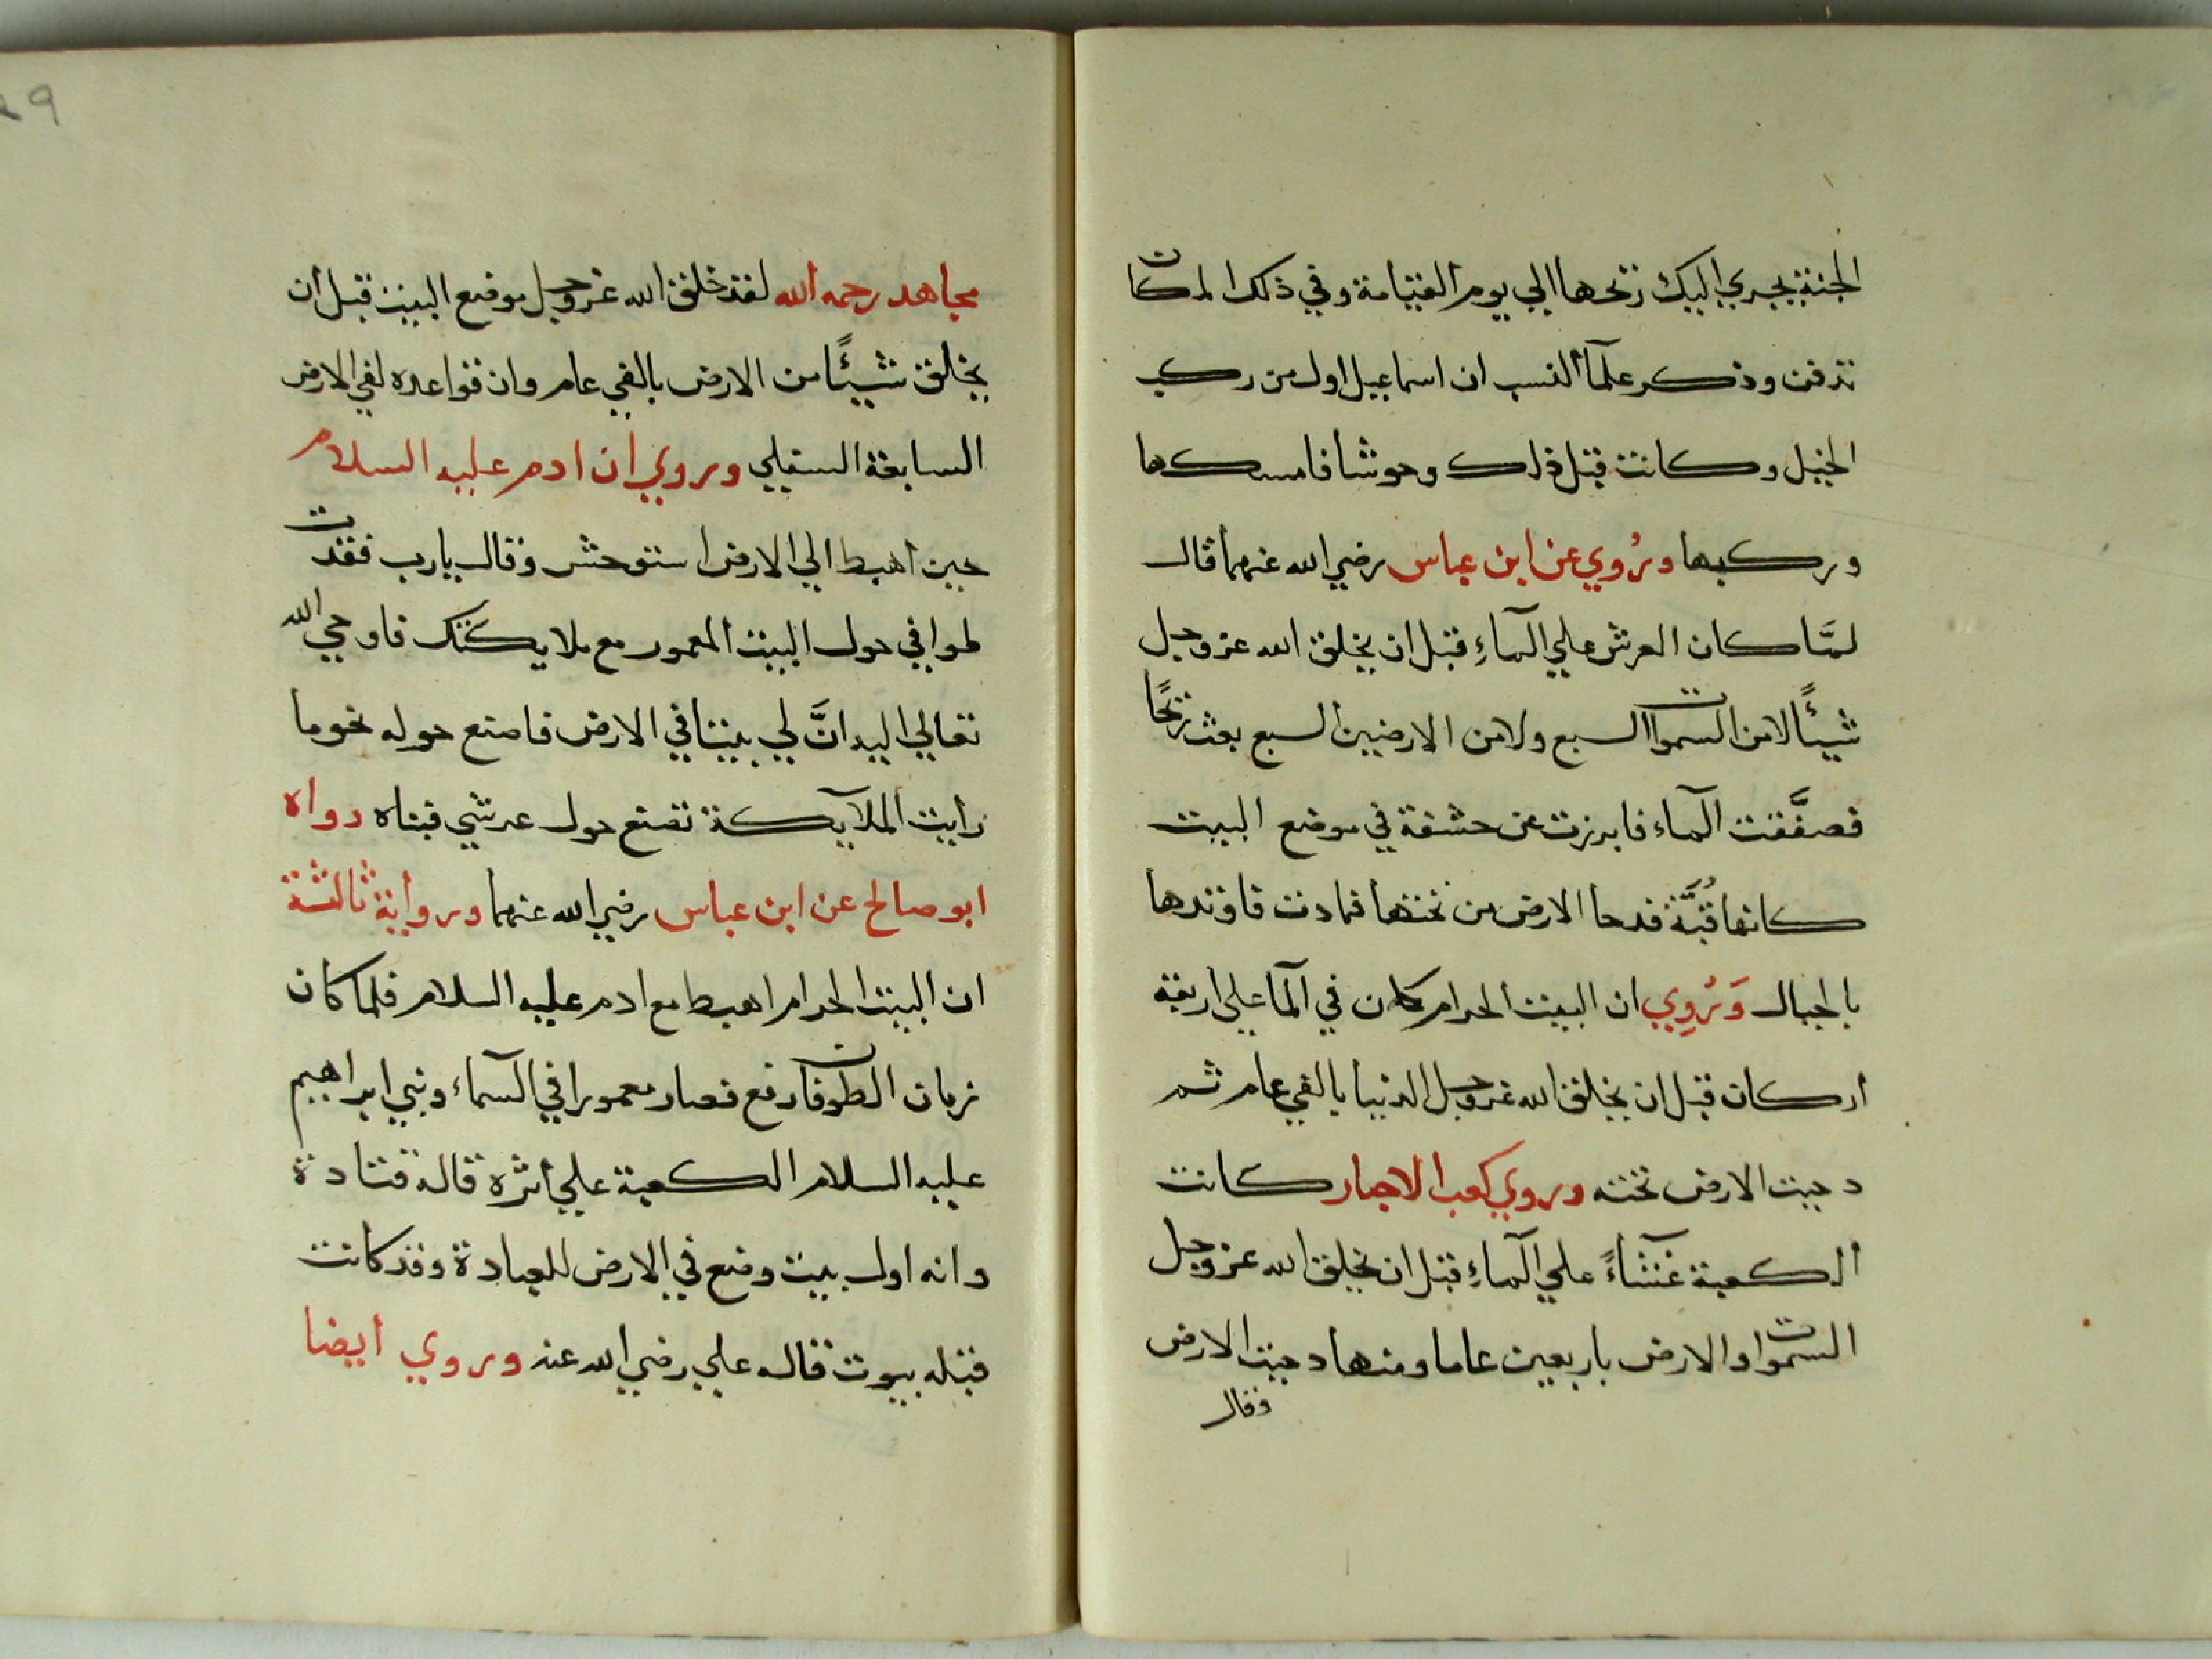 الجنة يجري اليك ريحها الي يوم القيامة وفي ذلك المكان
تدفن وذكر علمآ النسب ان اسماعيل اول من ركب
الخيل وكانت قبل ذلك وحوشا فامسكها
وركبها ورُوي عن ابن عباس رضي الله عنهما قال
لمَّا كان العرش علي المآءِ قبل ان يخلق الله عز وجل
شيئًا لا من السموات السبع ولا من الارضين السبع بعث ريحًا
فصفَّقت المآء فابرزت عن حشفة في موضع البيت
كانها قُبَّة فدحا الارض من تحتها فمادت فاوتدها
بالجبال وَرُوِي ان البيت الحرام كان في المآ علي اربعة
اركان قبل ان يخلق الله عز وجل الدنيا بالفي عام ثم
دحيت الارض تحته وروي كعب الاحبار كانت
الكعبة غثآءً علي المآءِ قبل ان يخلق الله عز وجل
السموات والارض باربعين عاما ومنها دحيت الارض
وقال
29
مجاهد رحمه الله لقد خلق الله عز وجل موضع البيت قبل ان
يخلق شيئًا من الارض بالفي عام وان قواعده لفي الارض
السابعة السفلي وروي ان ادم عليه السلام
حين اهبط الي الارض استوحش وقال يارب فقدت
طوافي حول البيت المعمور مع ملايكتك فاوحي الله
تعالي اليه انَّ لي بيتا في الارض فاصنع حوله نحو ما
رايت الملآيكة تصنع حول عرشي فبناه رواه
ابو صالح عن ابن عباس رضي الله عنهما ورواية ثالثة
ان البيت الحرام اهبط مع ادم عليه السلام فلما كان
زمان الطوفان رفع فصار معمورا في السمآء وبني ابراهيم
عليه السلام الكعبة علي اثره قاله قتادة
وانه اول بيت وضع في الارض للعبادة وقد كانت
قبله بيوت قاله علي رضي الله عنه وروي ايضا